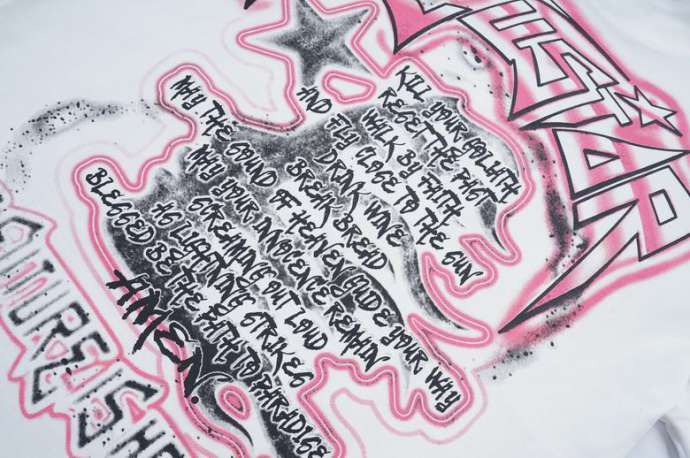 KILL YOUR GOLIATH
REGET THE PAST
WALK BY FAITH
FLY CLOSE TO THE SUN
AND DRINK WINE
BREAK BREAD
MAY THE SOUND OF HEAVEN GUIDE YOUR WAY
MAY YOUR INNOCENCE REMAIN
SCREAMING OUT LOUD
AS LIGHTNING STRIKES
BLESSED BE THE PATH TO PARADISE
AMEN.